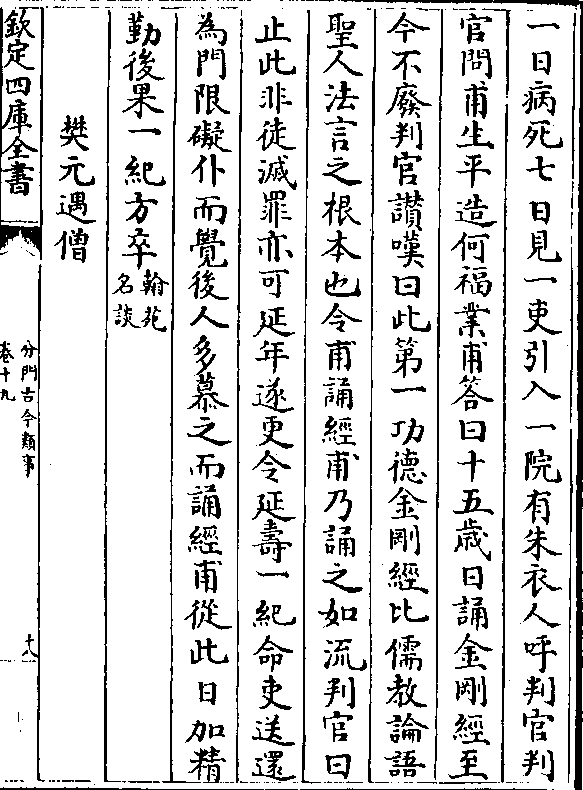 一日病死七日見一吏引入一院有朱衣人呼判官判
官問甫生平造何福業甫答曰十五歳日誦金剛經至
今不廢判官讃嘆曰此第一功德金剛經比儒教論語
聖人法言之根本也令甫誦經甫乃誦之如流判官曰
止此非徒滅罪亦可延年遂更令延壽一紀命吏送還
為門限礙仆而覺後人多慕之而誦經甫從此日加精
勤後果一紀方卒翰苑名談
樊元遇僧
欽定四庫全書
分門古今類事
卷十九
十八